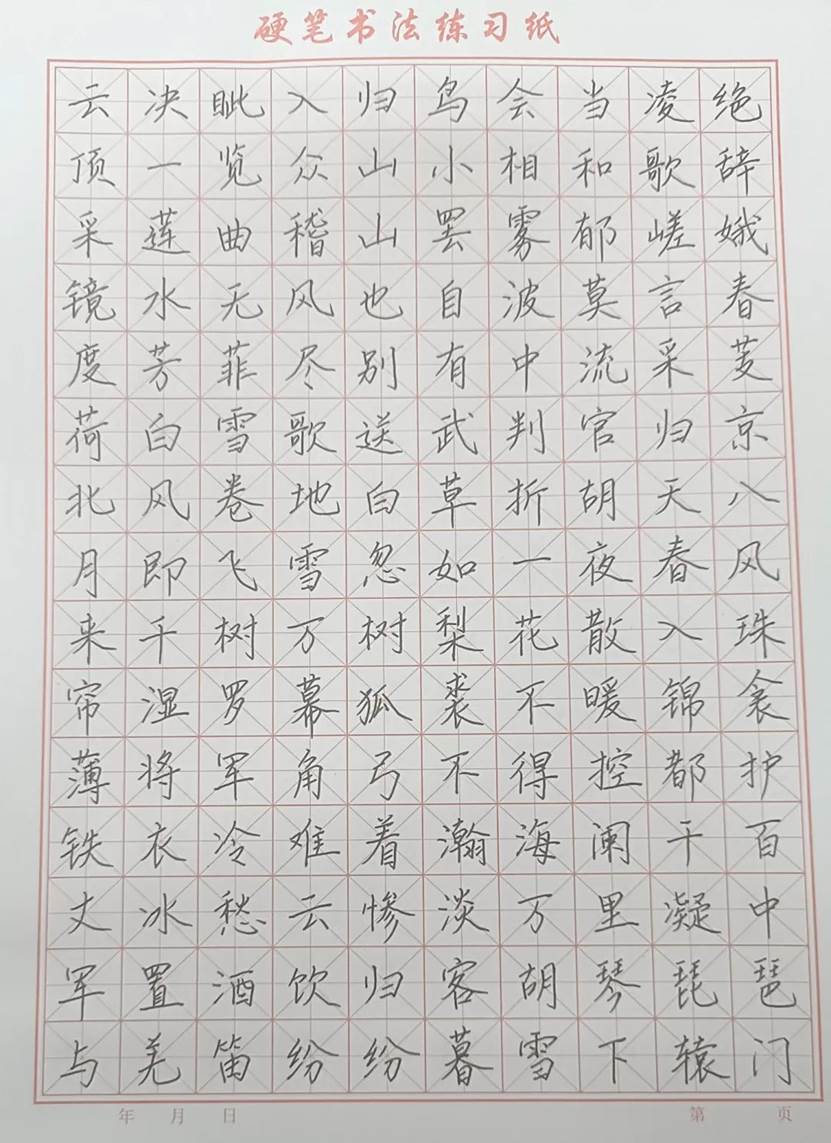 硬笔书法练习纸
云决眦入归鸟会当凌绝
顶一览众山小相和歌辞
采莲曲稽山罢雾郁嵯峨
镜水无风也自波莫言春
度芳菲尽别有中流采芰
荷白雪歌送武判官归京
北风卷地白草折胡天八
月即飞雪忽如一夜春风
来千树万树梨花散入珠
帘湿罗幕狐裘不暖锦衾
薄将军角弓不得控都护
铁衣冷难着瀚海阑干百
丈冰愁云惨淡万里凝中
军置酒饮归客胡琴琵琶
与羌笛纷纷暮雪下辕门
年 月 日 第 页